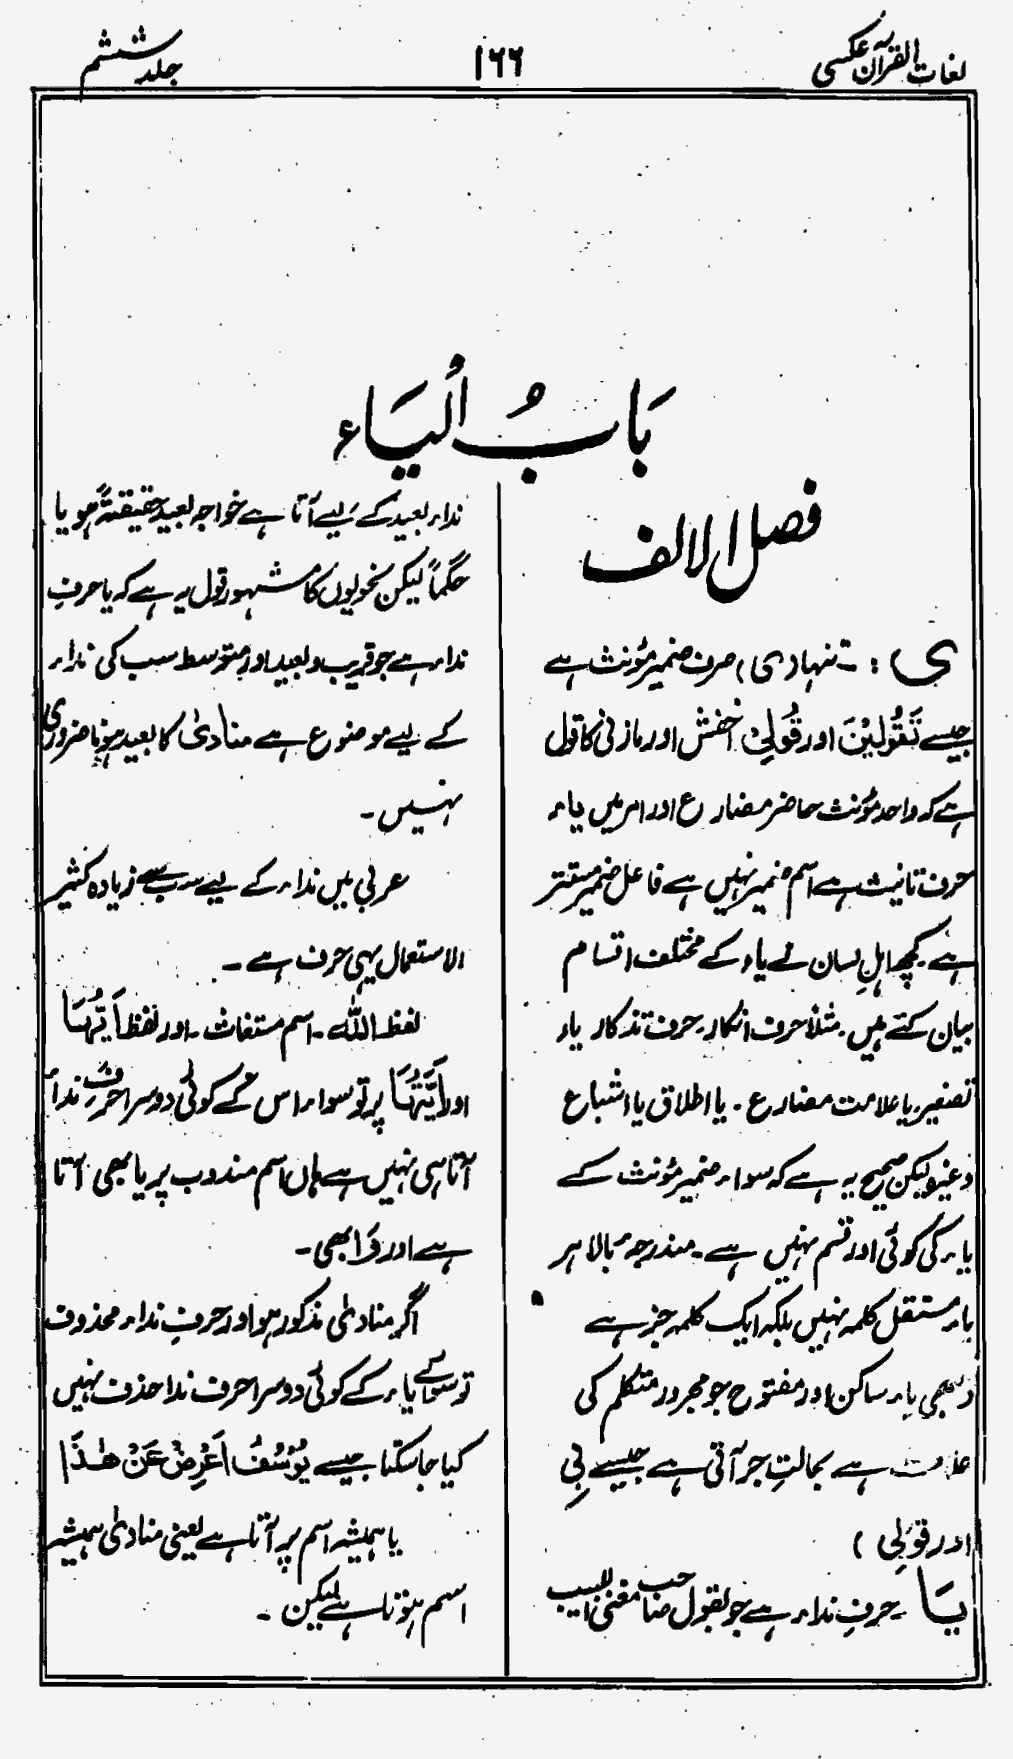 لغات القرآن عکسی
۱۶۶
جلد ششم
بَابُ الْیَاء
فصل الالف
ی : - تنہا (ی) صرف ضمیر مؤنث ہے
جیسے تَقُوْلِیْنَ اور قُوْلِیْ اخفش اور مازنی کا قول
ہے کہ واحد مؤنث حاضر مضارع اور امر میں یاء
حرف تانیث ہے اسم ضمیر نہیں ہے فاعل ضمیر مستتر
ہے۔ کچھ اہلِ لسان نے یاء کے مختلف اقسام
بیان کئے ہیں۔ مثلاً حرف انکار۔ حرف تذکار یاء
تصغیر یا علامت مضارع۔ یا اطلاق یا اشباع
وغیرہ لیکن صحیح یہ ہے کہ سواء ضمیر مؤنث کے
یاء کی کوئی اور قسم نہیں ہے۔ مندرجہ بالا ہر
یاء مستقل کلمہ نہیں بلکہ ایک کلمہ جز ہے
(کبھی یاء ساکن اور مفتوح جو مجرور متکلم کی
علامت ہے بحالتِ جر آتی ہے جیسے بِی
اور قَوْلِی )
یَا ۔ حرفِ نداء ہے جو بقول صاحب مغنی اللبیب
نداء بعید کے لیے آتا ہے خواہ بعید حقیقۃً ہو یا
حکماً لیکن نحویوں کا مشہور قول یہ ہے کہ یا حرفِ
نداء ہے جو قریب و بعید اور متوسط سب کی نداء
کے لیے موضوع ہے منادیٰ کا بعید ہونا ضروری
نہیں۔
عربی میں نداء کے لیے سب سے زیادہ کثیر
الاستعمال یہی حرف ہے ۔
لفظ اللہ ۔ اسم مستغاث ۔ اور لفظ اَیُّہَا
اور اَیَّتُہَا پر تو سواء اس کے کوئی دوسرا حرفِ نداء
آتا ہی نہیں ہے ہاں اسم مندوب پر یا بھی آتا
ہے اور وَا بھی۔
اگر منادیٰ مذکور ہو اور حرفِ نداء محذوف
تو سوائے یاء کے کوئی دوسرا حرف ندا حذف نہیں
کیا جا سکتا جیسے یُوْسُفُ اَعْرِضْ عَنْ ھٰذَا
یا ہمیشہ اسم پر آتا ہے یعنی منادیٰ ہمیشہ
اسم ہوتا ہے لیکن ۔